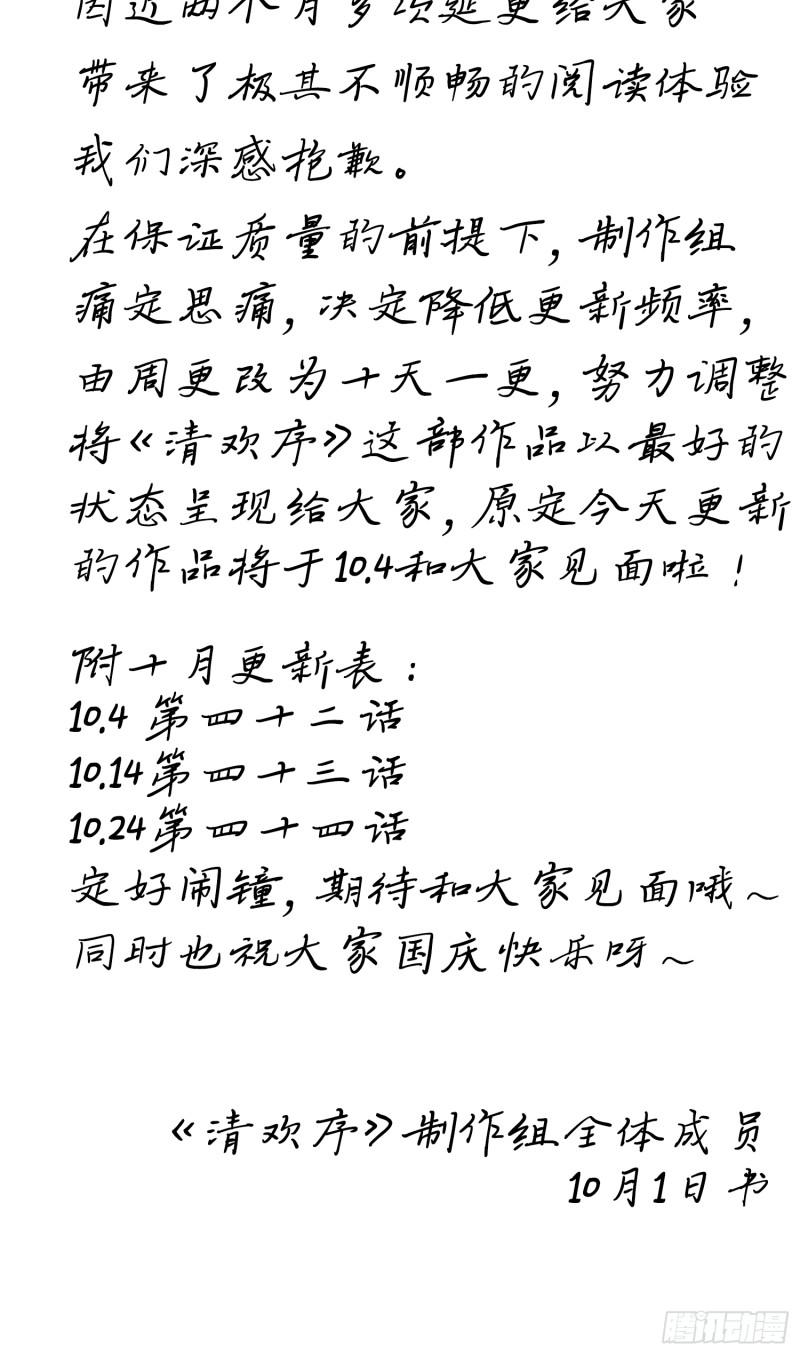 因近两个月多次延更给大家
带来了极其不顺畅的阅读体验
我们深感抱歉。
在保证质量的前提下，制作组
痛定思痛，决定降低更新频率，
由周更改为十天一更，努力调整
将《清欢序》这部作品以最好的
状态呈现给大家，原定今天更新
的作品将于10.4和大家见面啦！
附十月更新表：
10.4 第四十二话
10.14第四十三话
10.24第四十四话
定好闹钟，期待和大家见面哦~
同时也祝大家国庆快乐呀~
《清欢序》制作组全体成员
10月1日 书
腾讯动漫